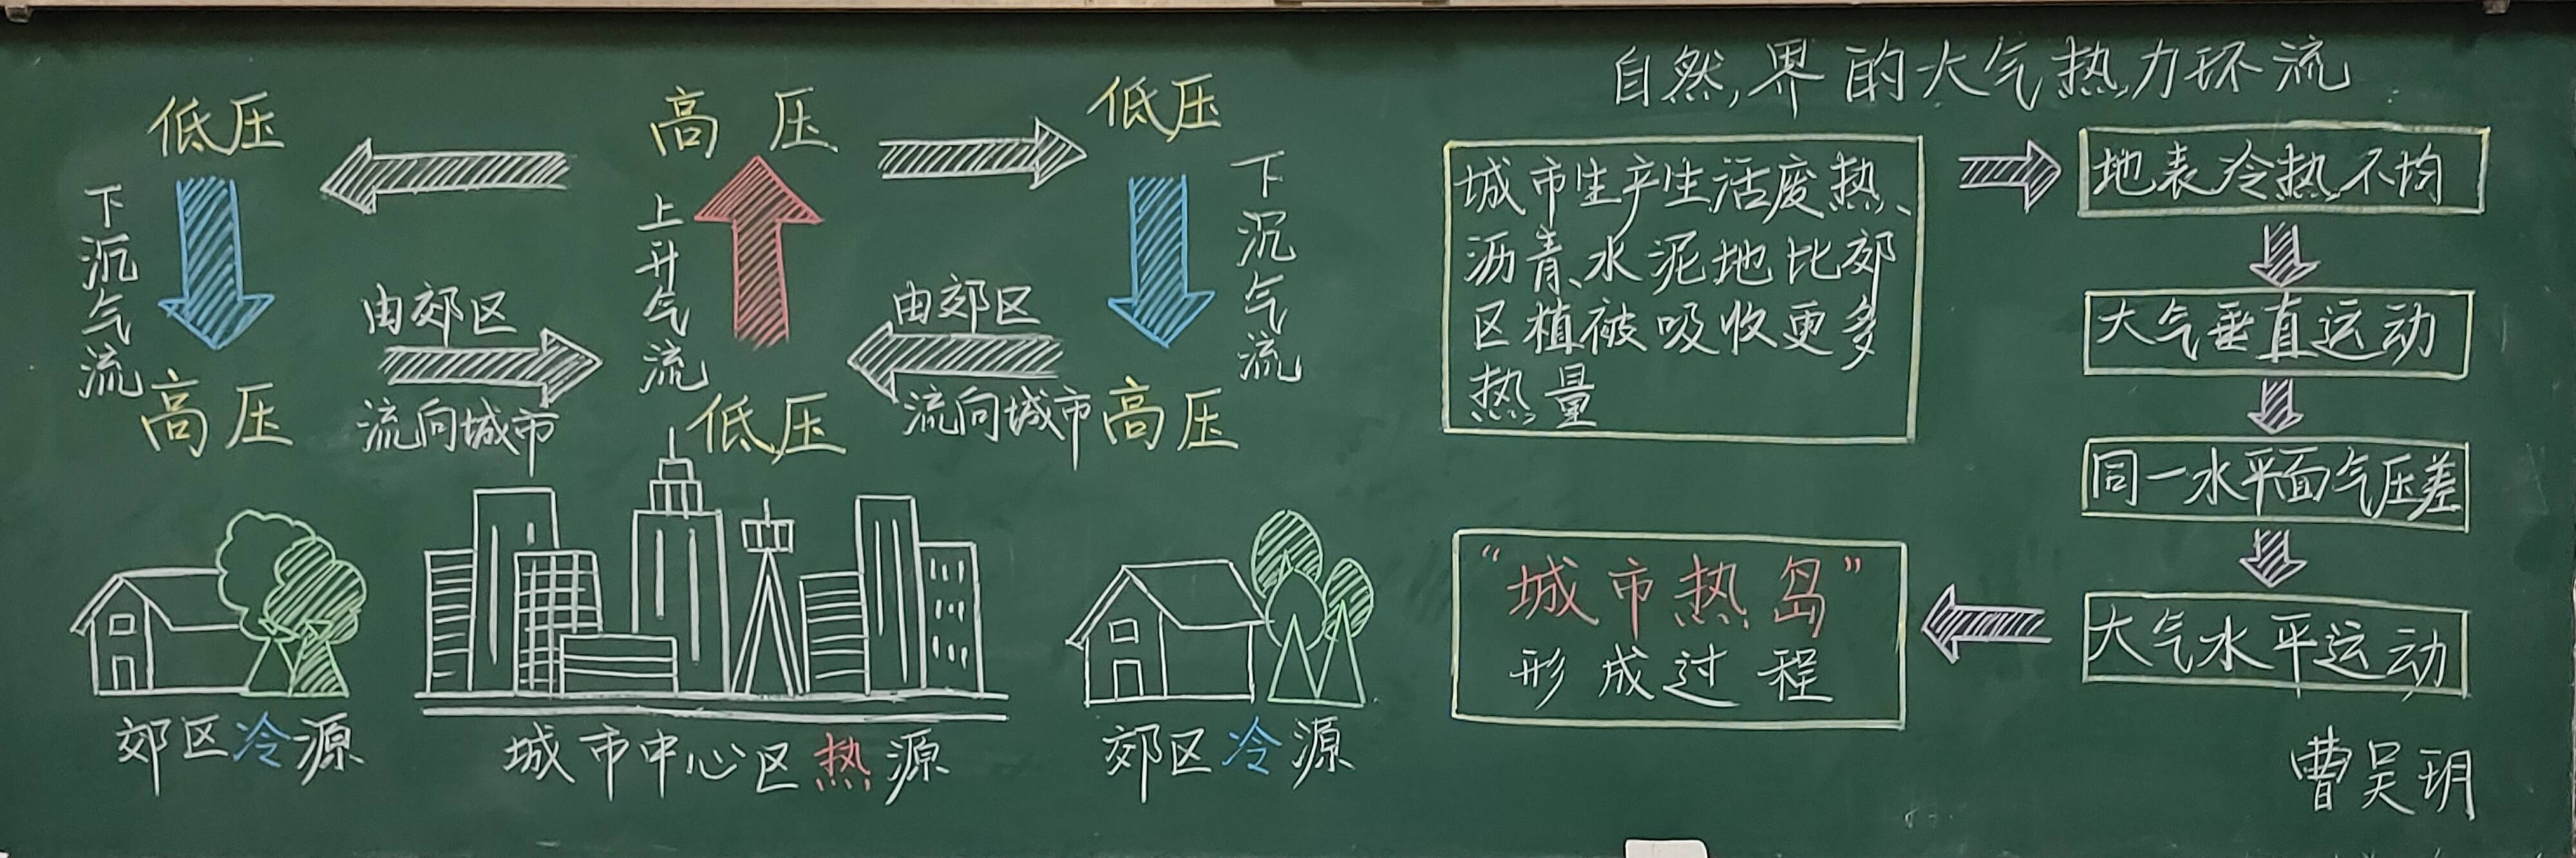 自然界的大气热力环流
低压
高压
低压
下沉气流
上升气流
下沉气流
由郊区
流向城市
由郊区
流向城市
高压
低压
高压
郊区冷源
城市中心区热源
郊区冷源
城市生产生活废热、
沥青、水泥地比郊
区植被吸收更多
热量
地表冷热不均
大气垂直运动
同一水平面气压差
大气水平运动
“城市热岛”
形成过程
曹吴玥